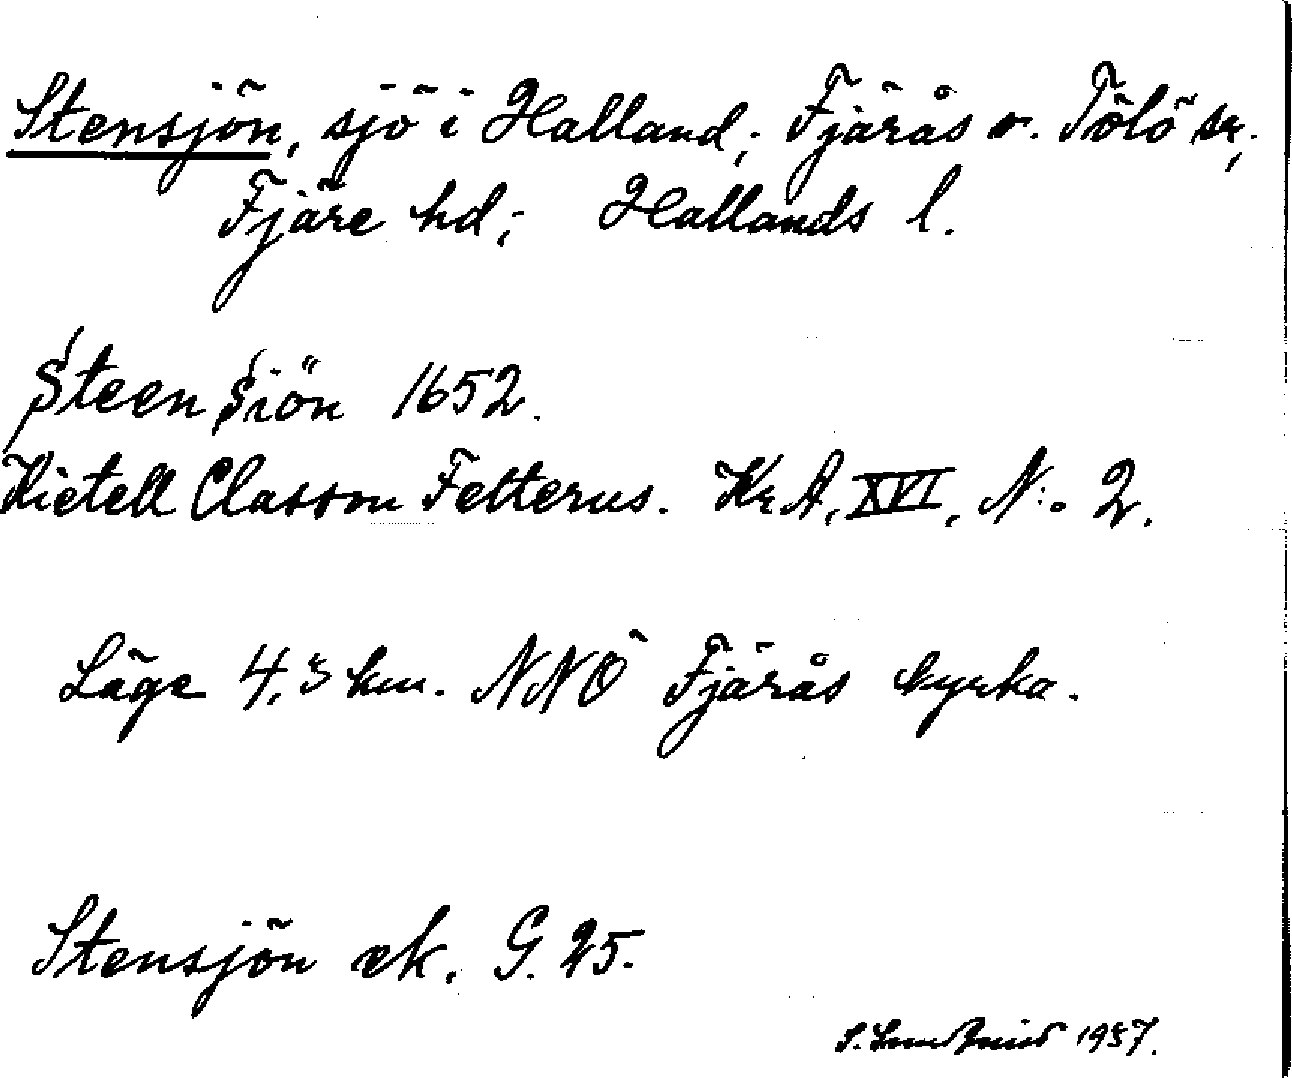 Stensjön, sjö i Halland; Fjärås o. Tölö sr;
Fjäre hd; Hallands l.
Steen Siön 1652.
Kietell Classon Felterus. KrA, XVI, N:o 2.
Läge 4,3 km. NNÖ Fjärås kyrka.
Stensjön ek. G. 25.
1937.